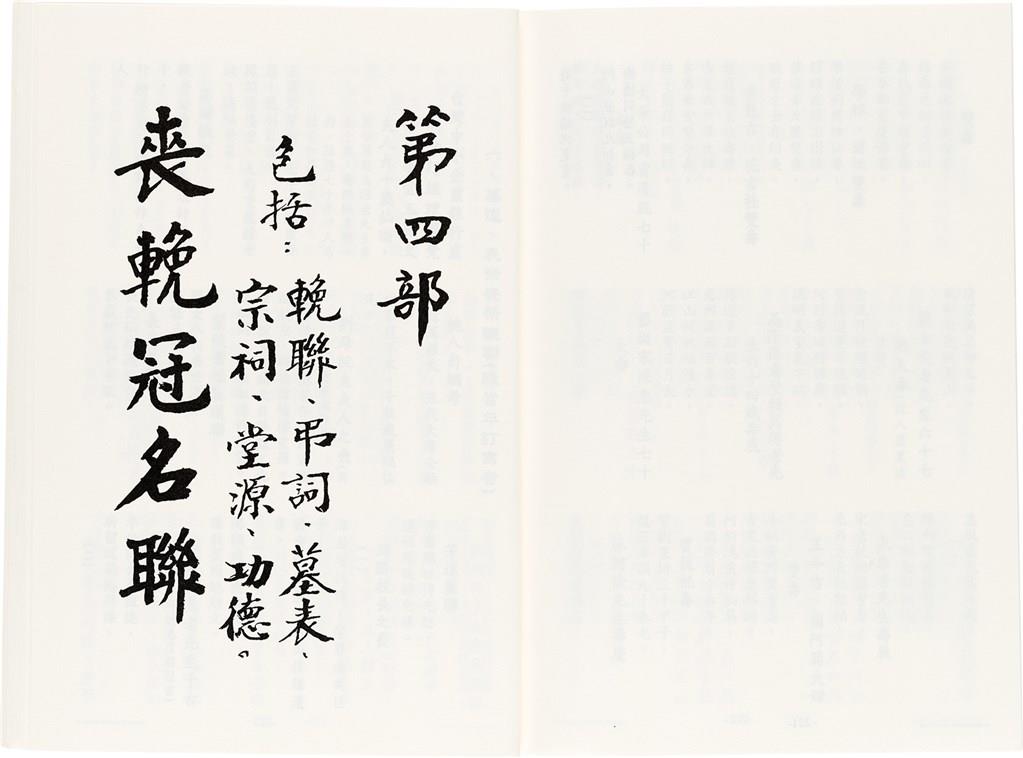 第四部
包括：
輓聯、弔詞、墓表、
宗祠、堂源、功德。
喪輓冠名聯